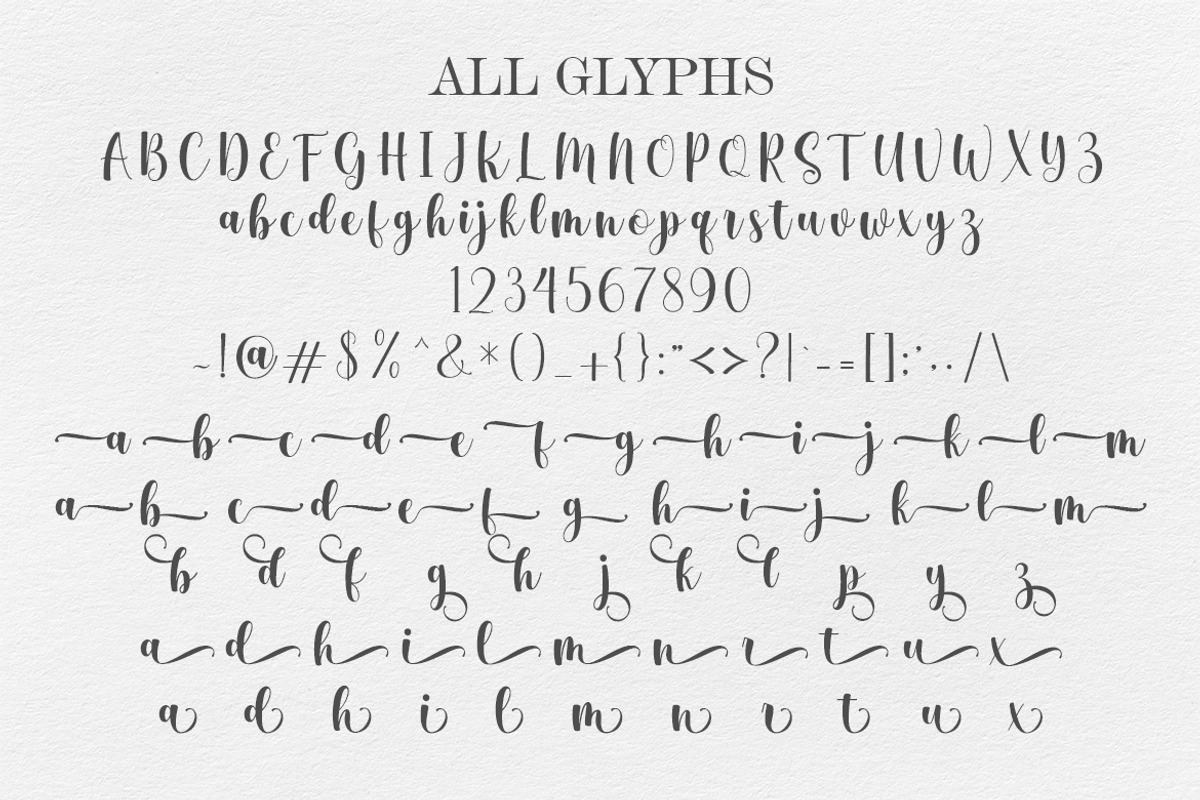 ALL GLYPHS
ABCDEFGHIJKLMNOPQRSTUVWXYZ
abcdefghijklmnopqrstuvwxyz
1234567890
~!@#$%^&*()_+{}:"<>?|`-=[];',./\
a b c d e f g h i j k l m
a b c d e f g h i j k l m
b d f g h j k l p y z
a d h i l m n r t u x
a d h i l m n r t u x